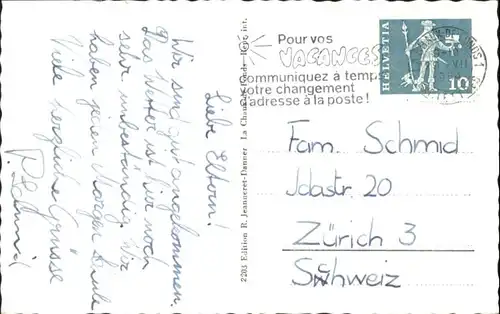 Liebe Eltern!
Wir sind gut angekommen.
Das Wetter ist hier noch
sehr unbeständig. Wir
haben jeden Morgen Schule
Viele herzliche Grüsse
2203 Edition R. Jeanneret-Danner La Chaux-de-Fonds Repr. int.
Pour vos
VACANCES
communiquez à temps
votre changement
d'adresse à la poste!
HELVETIA
10
Fam. Schmid
Idastr. 20
Zürich 3
Schweiz